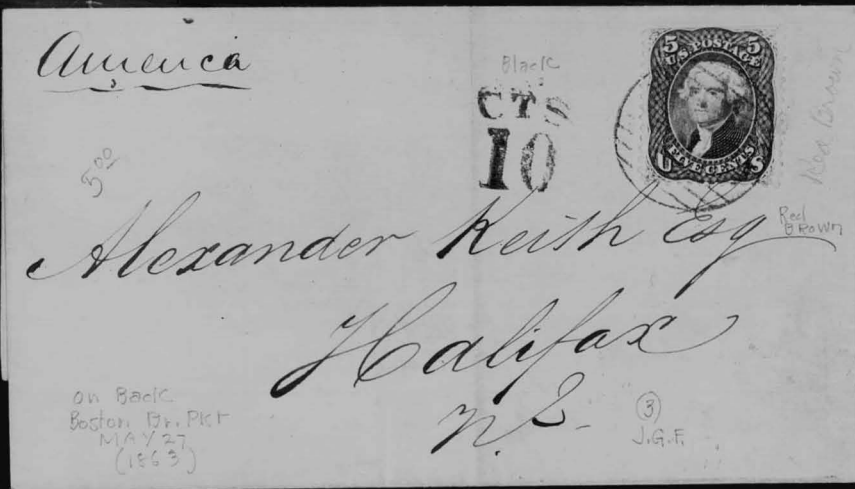 America
Black
CTS
10
5 5
U.S. POSTAGE
FIVE CENTS
U S
5.00
Red Brown
Alexander Keith Esq
Red
BROWN
Halifax
N.S.
on Back
Boston Br. Pkt
MAY 27
(1863)
3
J.G.F.